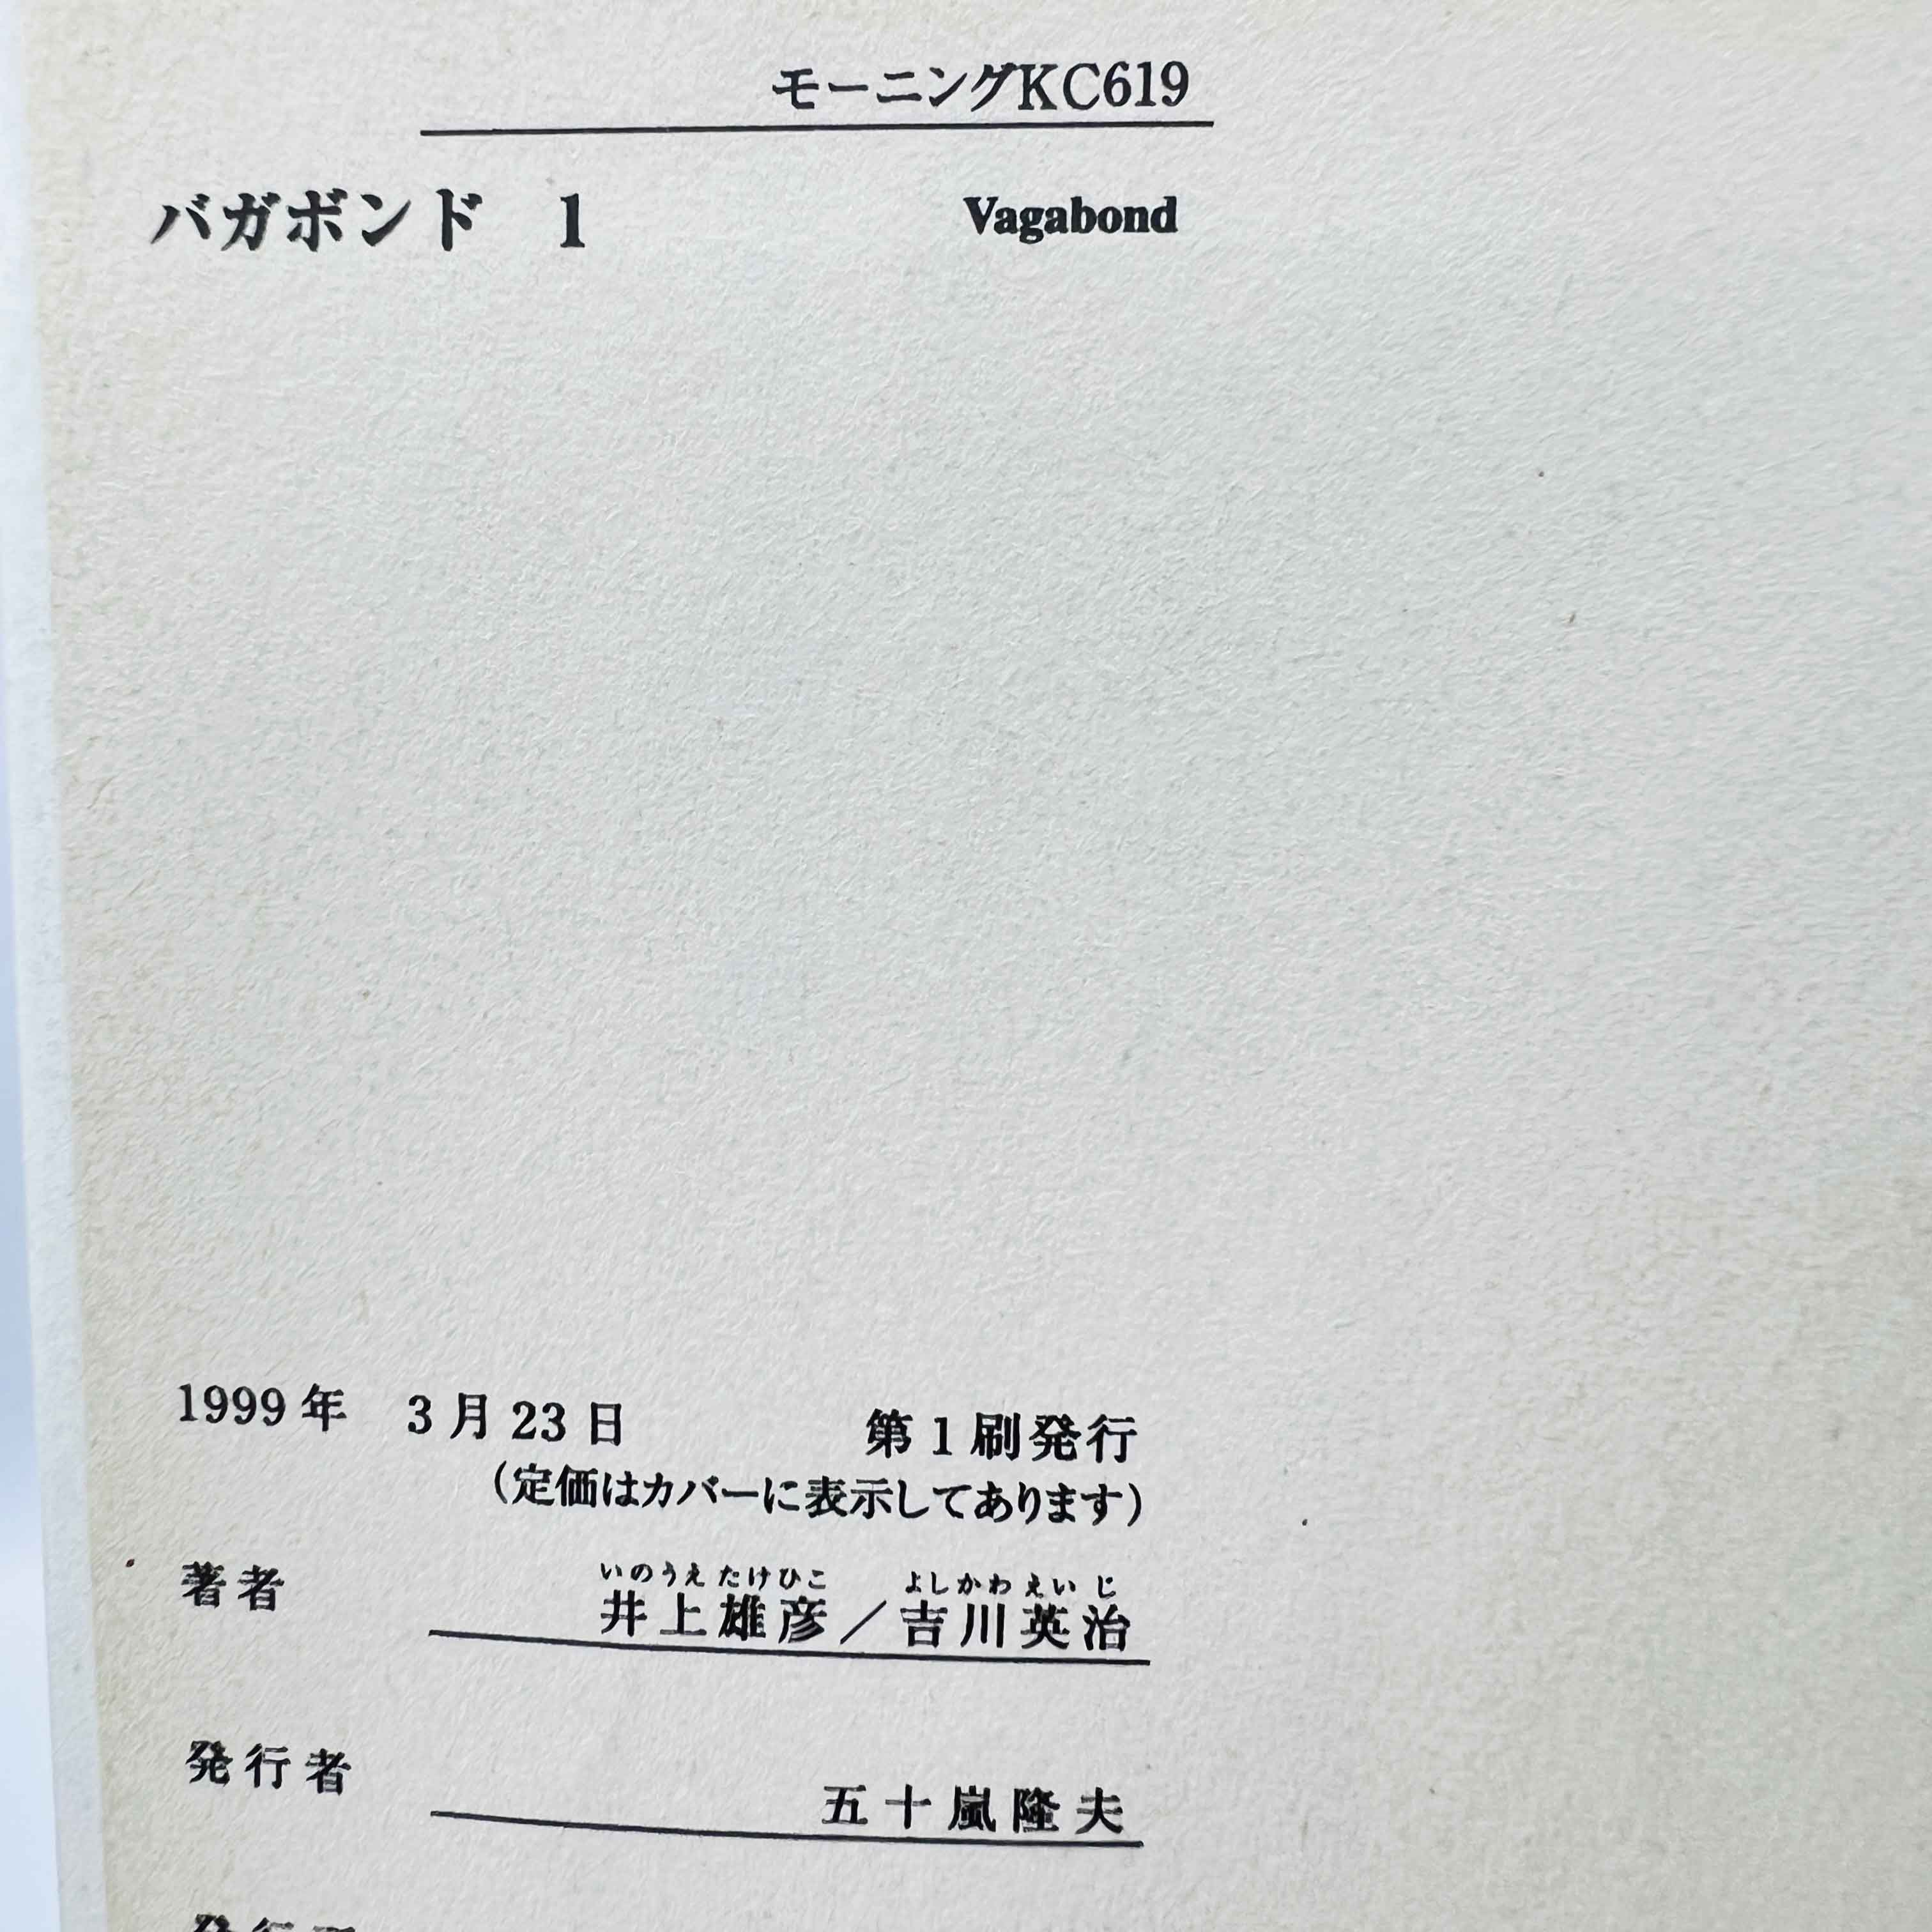 モーニングKC619
バガボンド 1 Vagabond
1999年 3月23日 第1刷発行
(定価はカバーに表示してあります)
いのうえたけひこ よしかわえいじ
著者 井上雄彦／吉川英治
発行者 五十嵐隆夫